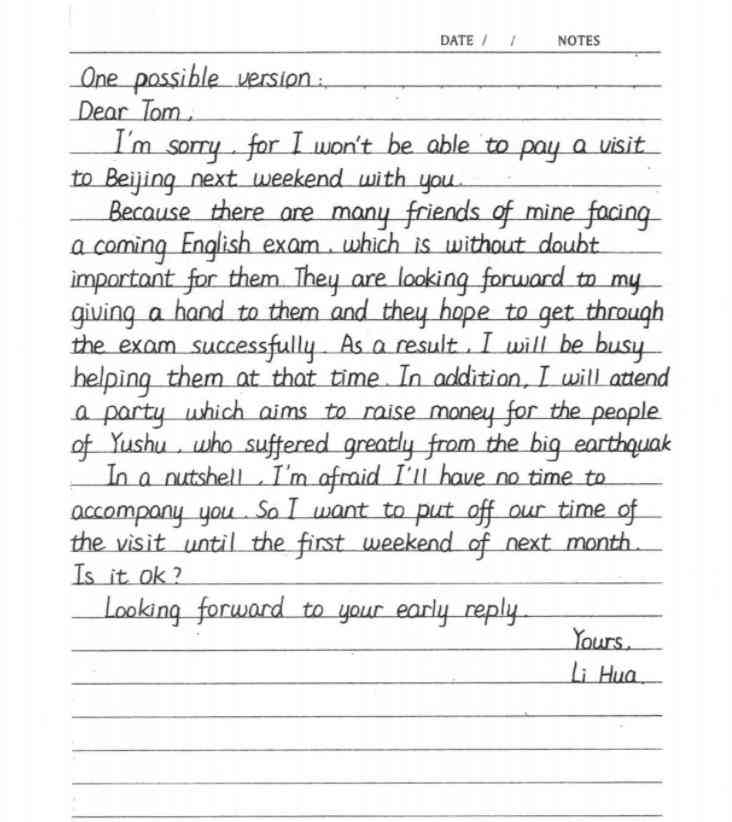 DATE / / NOTES
One possible version:
Dear Tom,
I'm sorry, for I won't be able to pay a visit
to Beijing next weekend with you.
Because there are many friends of mine facing
a coming English exam, which is without doubt
important for them. They are looking forward to my
giving a hand to them and they hope to get through
the exam successfully. As a result, I will be busy
helping them at that time. In addition, I will attend
a party which aims to raise money for the people
of Yushu, who suffered greatly from the big earthquak
In a nutshell, I'm afraid I'll have no time to
accompany you. So I want to put off our time of
the visit until the first weekend of next month.
Is it ok?
Looking forward to your early reply.
Yours,
Li Hua.